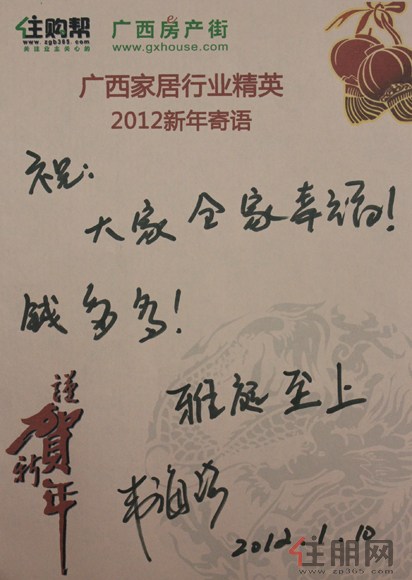 住购帮 广西房产街
www.zgb365.com www.gxhouse.com
关注业主关心的
广西家居行业精英
2012新年寄语
祝:
大家全家幸福!
钱多多!
雅庭至上
韦海
2012.1.10
谨
贺
新
年
住朋网
www.zp365.com